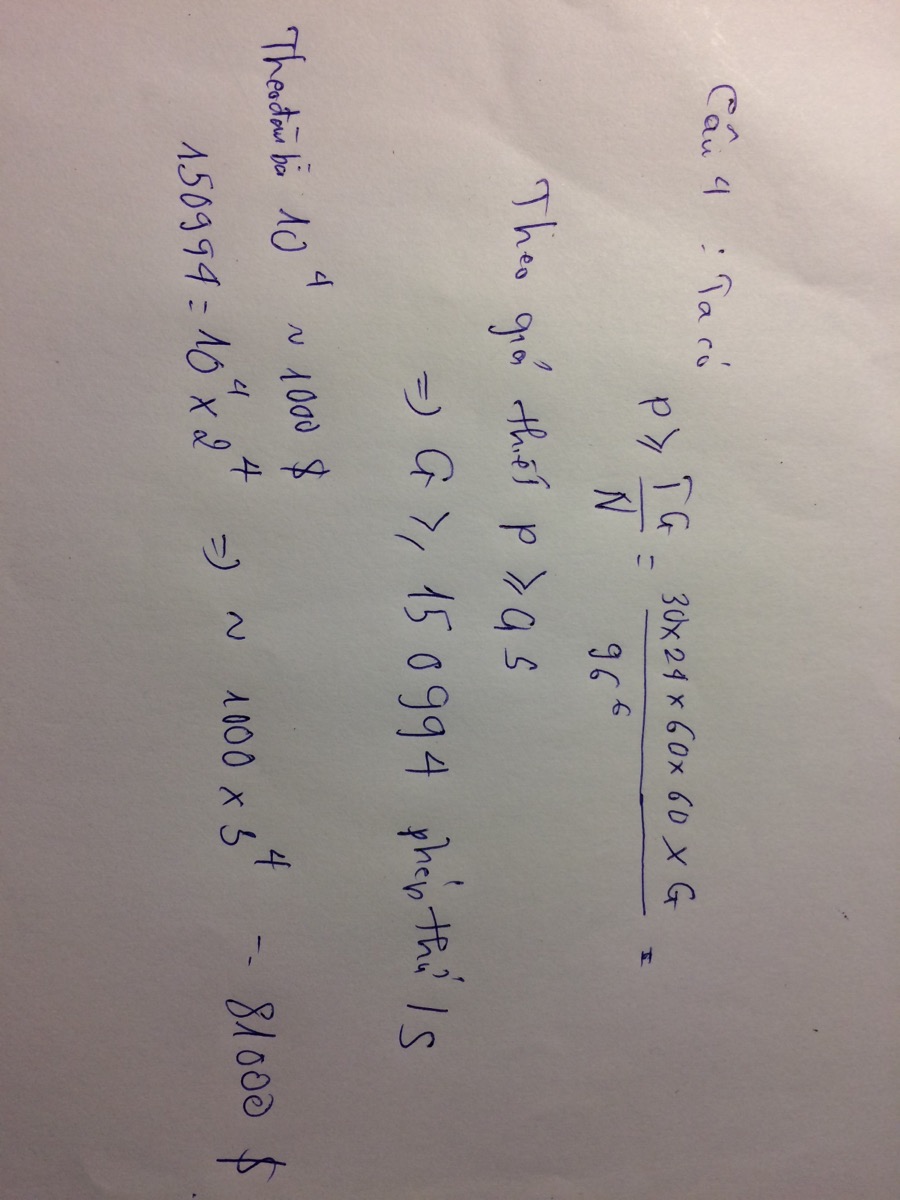 Câu 4 : Ta có
P ≥ TG/N = 30x24x60x60xG / 96^6 =
Theo giả thiết P ≥ 0,5
=> G ≥, 150994 phép thử /s
Theo đầu bài 10^4 ~ 1000 $
150994 = 10^4 x 2^4 => ~ 1000 x 3^4 = 81000 $